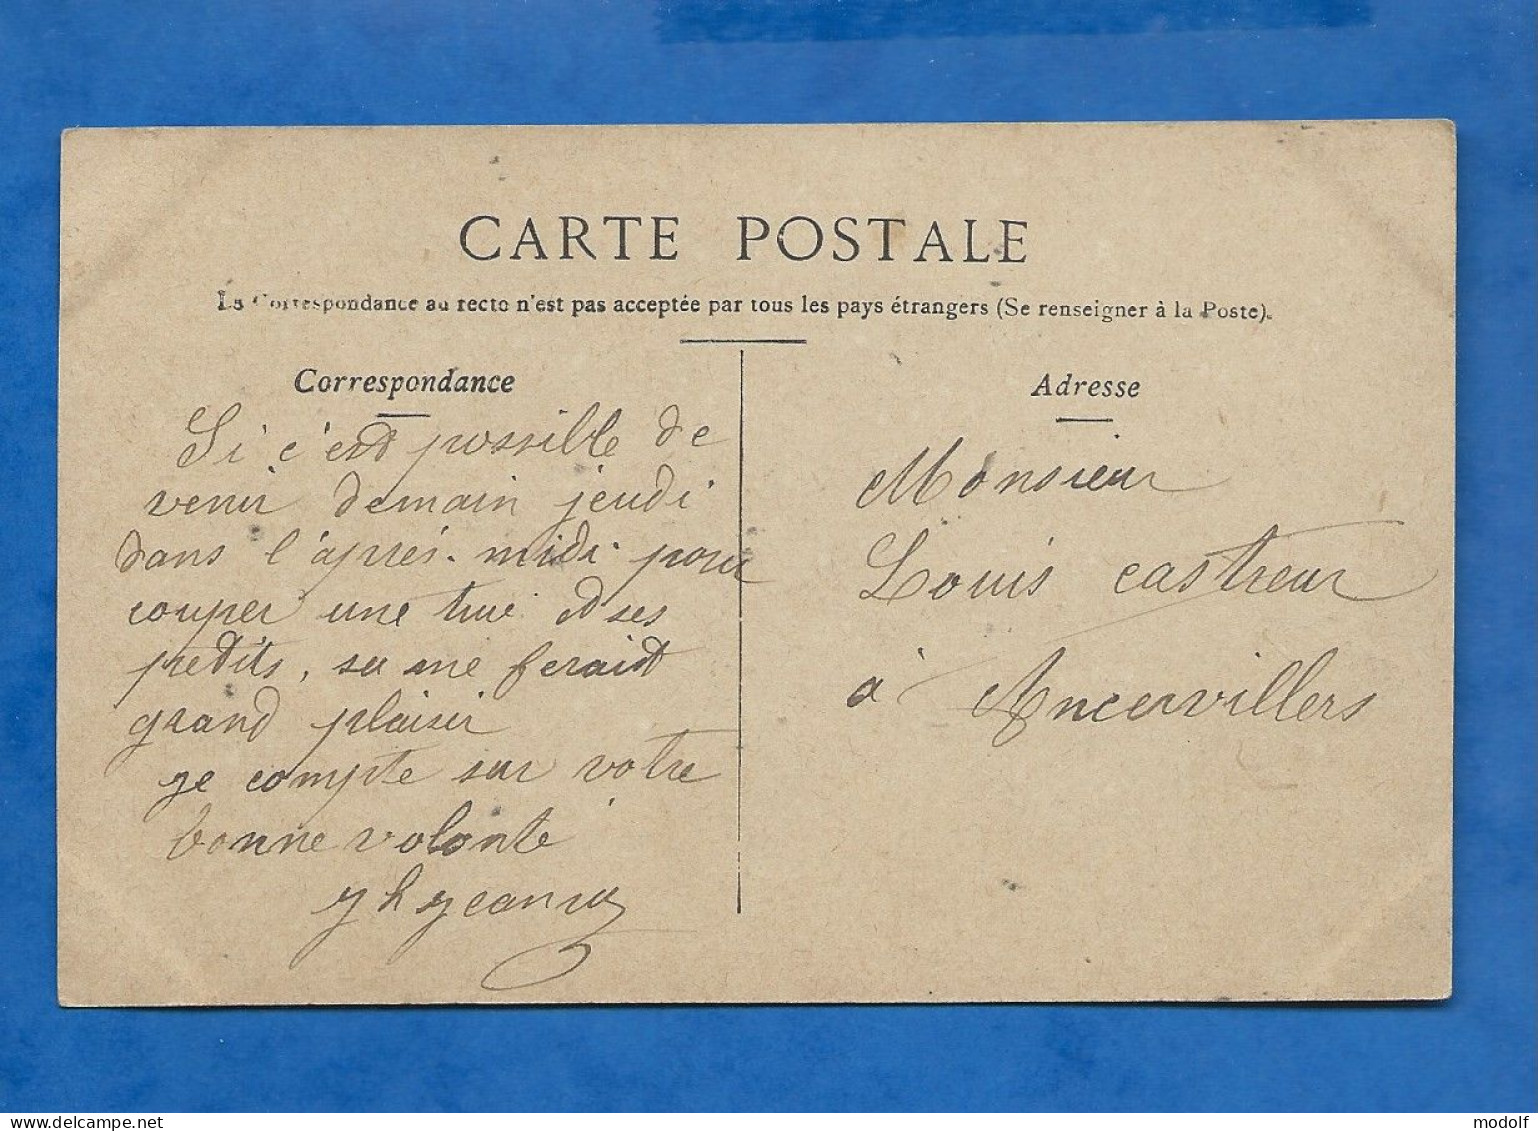 CARTE POSTALE
La Correspondance au recto n'est pas acceptée par tous les pays étrangers (Se renseigner à la Poste).
Correspondance
Si c'est possible de
venir demain jeudi
dans l'après-midi pour
couper une truie et ses
petits, sa me ferait
grand plaisir
je compte sur votre
bonne volonté
Adresse
Monsieur
Louis castreur
à Ancervillers
https://www.delcampe.net
modolf